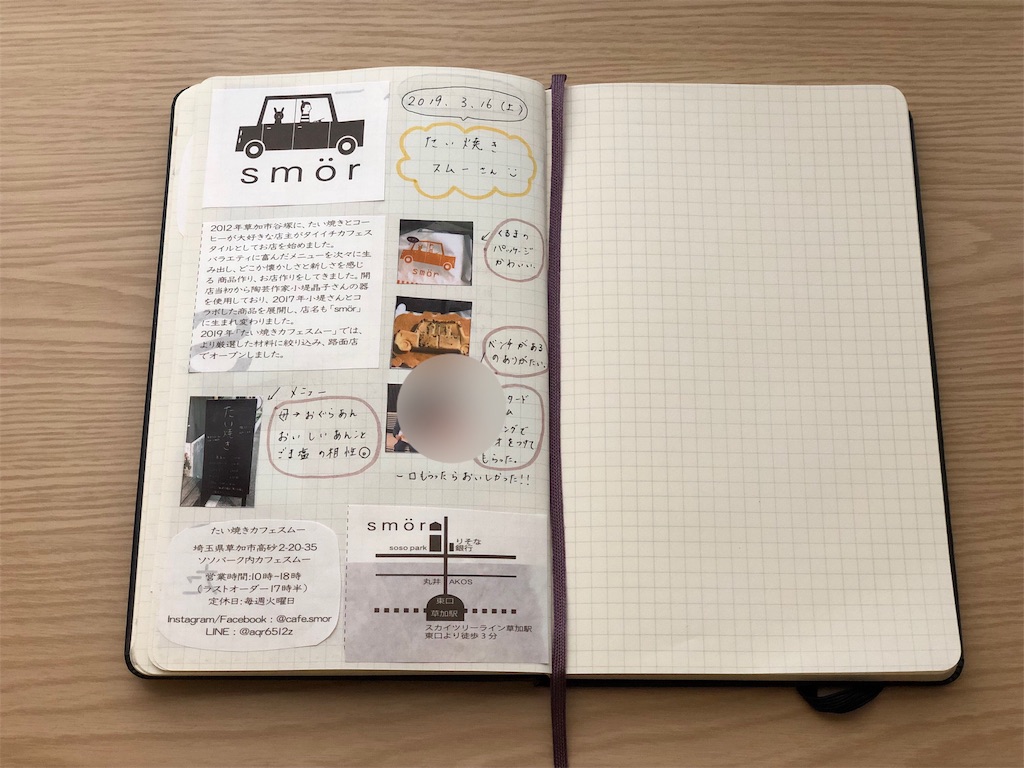 smör
2019. 3. 16 (土)
たい焼き
スムーさん
2012年草加市谷塚に、たい焼きとコー
ヒーが大好きな店主がタイイチカフェス
タイルとしてお店を始めました。
バラエティに富んだメニューを次々に生
み出し、どこか懐かしさと新しさを感じ
る 商品作り、お店作りをしてきました。開
店当初から陶芸作家小堤晶子さんの器
を使用しており、2017年小堤さんとコ
ラボした商品を展開し、店名も「smör」
に生まれ変わりました。
2019年「たい焼きカフェスムー」では、
より厳選した材料に絞り込み、路面店
でオープンしました。
smör
くるまの
パッケージ
かわいい。
ベンチがある
のありがたい。
メニュー
たい焼き
母→おぐらあん
おいしいあんこと
ごま塩の相性
タード
ム
ングで
オをつけて
もらった。
一口もらったらおいしかった!!
たい焼きカフェスムー
埼玉県草加市高砂2-20-35
ソソパーク内カフェスムー
営業時間:10時~18時
(ラストオーダー17時半)
定休日:毎週火曜日
Instagram/Facebook : @cafe.smor
LINE : @aqr6512z
smör
soso park
りそな
銀行
丸井
AKOS
東口
草加駅
スカイツリーライン草加駅
東口より徒歩3分